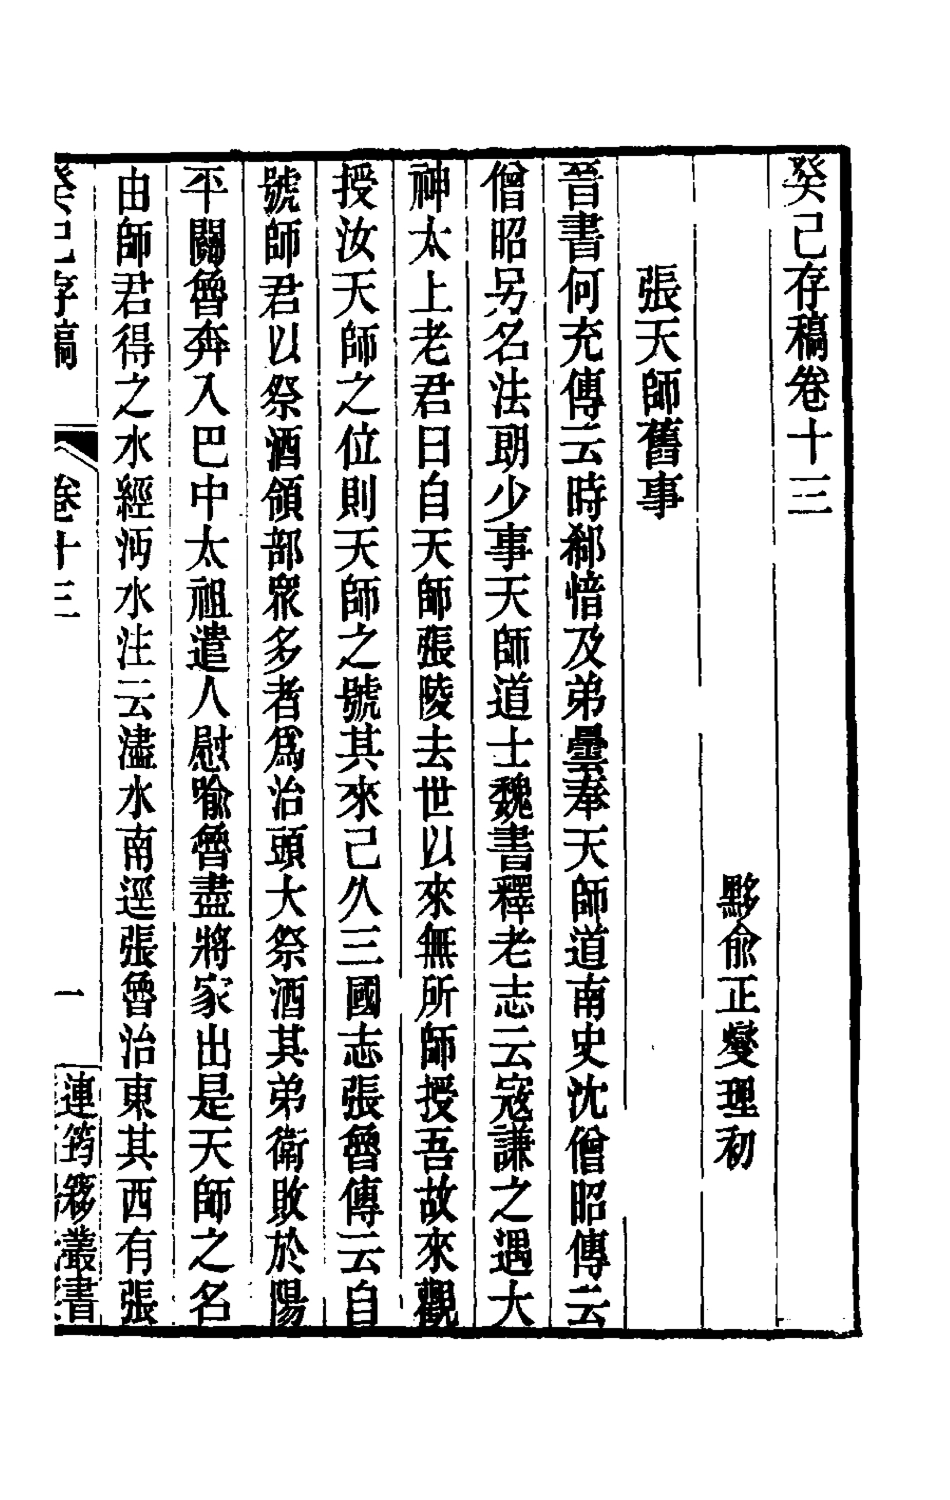 癸己存稿卷十三
黟俞正燮理初
張天師舊事
晉書何充傳云時郗愔及弟曇奉天師道南史沈僧昭傳云
僧昭另名法朗少事天師道士魏書釋老志云寇謙之遇大
神太上老君曰自天師張陵去世以來無所師授吾故來觀
授汝天師之位則天師之號其來己久三國志張魯傳云自
號師君以祭酒領部眾多者爲治頭大祭酒其弟衛敗於陽
平關魯奔入巴中太祖遣人慰喻魯盡將家出是天師之名
由師君得之水經沔水注云濜水南逕張魯治東其西有張
癸己存稿
卷十三
一
連筠簃叢書